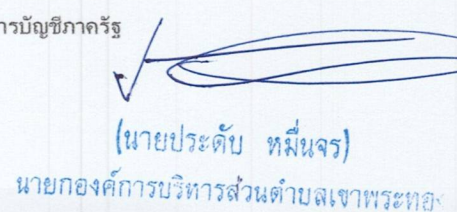 ารบัญชีภาครัฐ
(นายประดับ หมื่นจร)
นายกองค์การบริหารส่วนตำบลเขาพระทอง